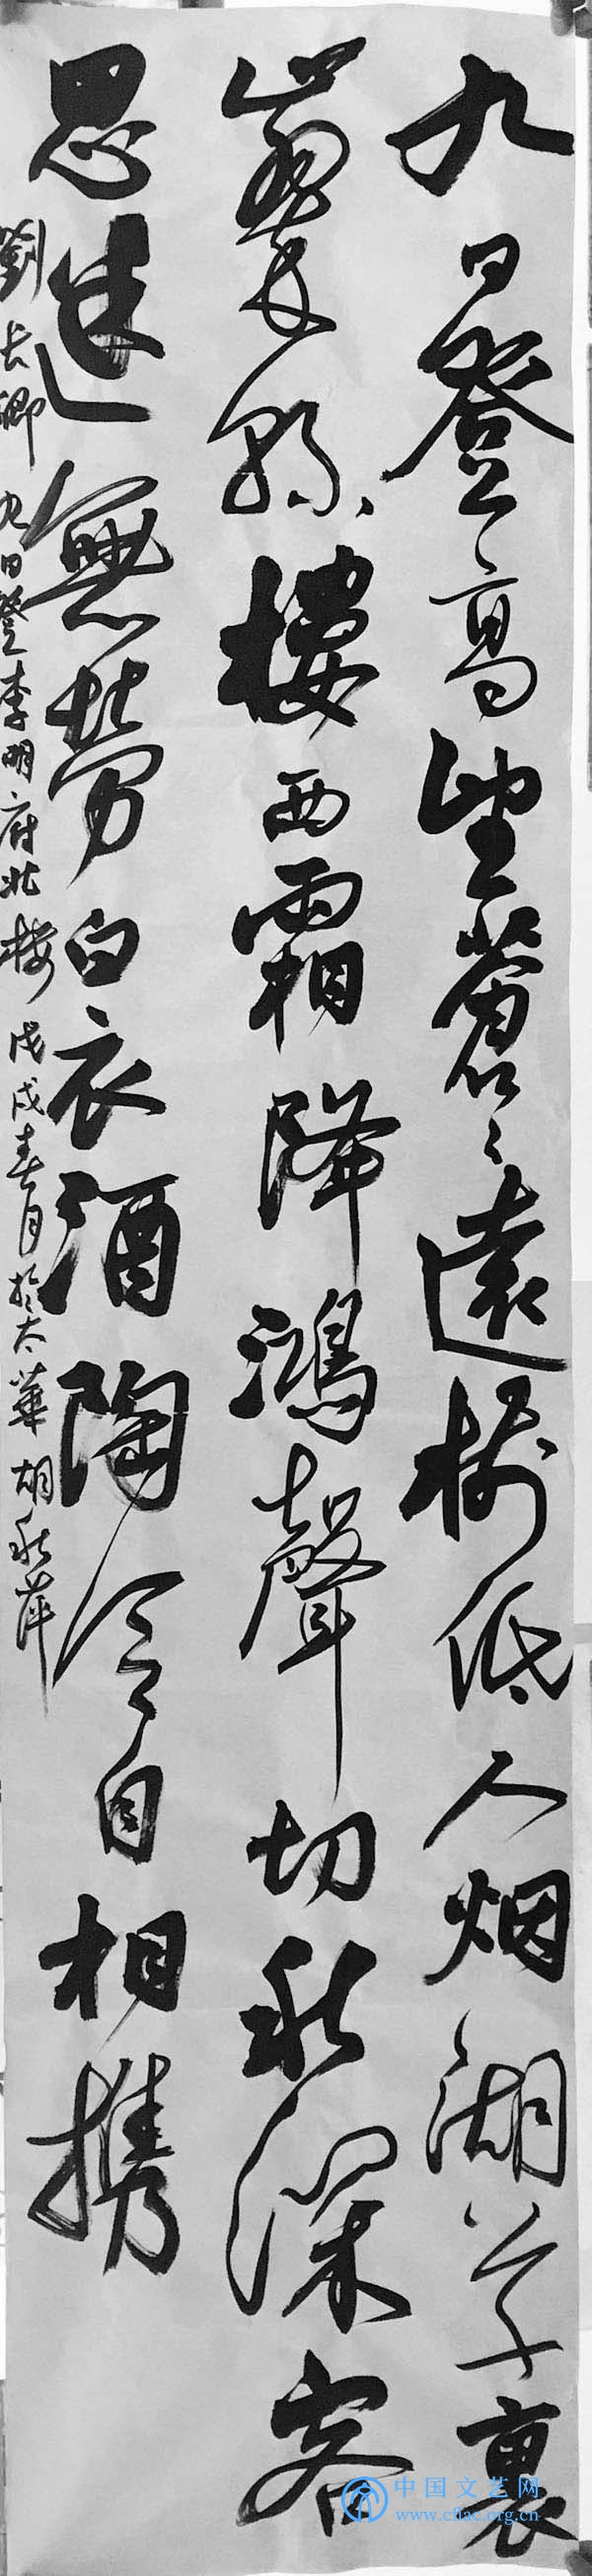 九日登高望蒼〻遠樹低人烟湖草裏
山翠縣樓西霜降鴻聲切秋深客
思迷無勞白衣酒陶令自相携
劉長卿九日登李明府北樓 戊戌春月於太華胡秋萍
中国文艺网
www.cflac.org.cn